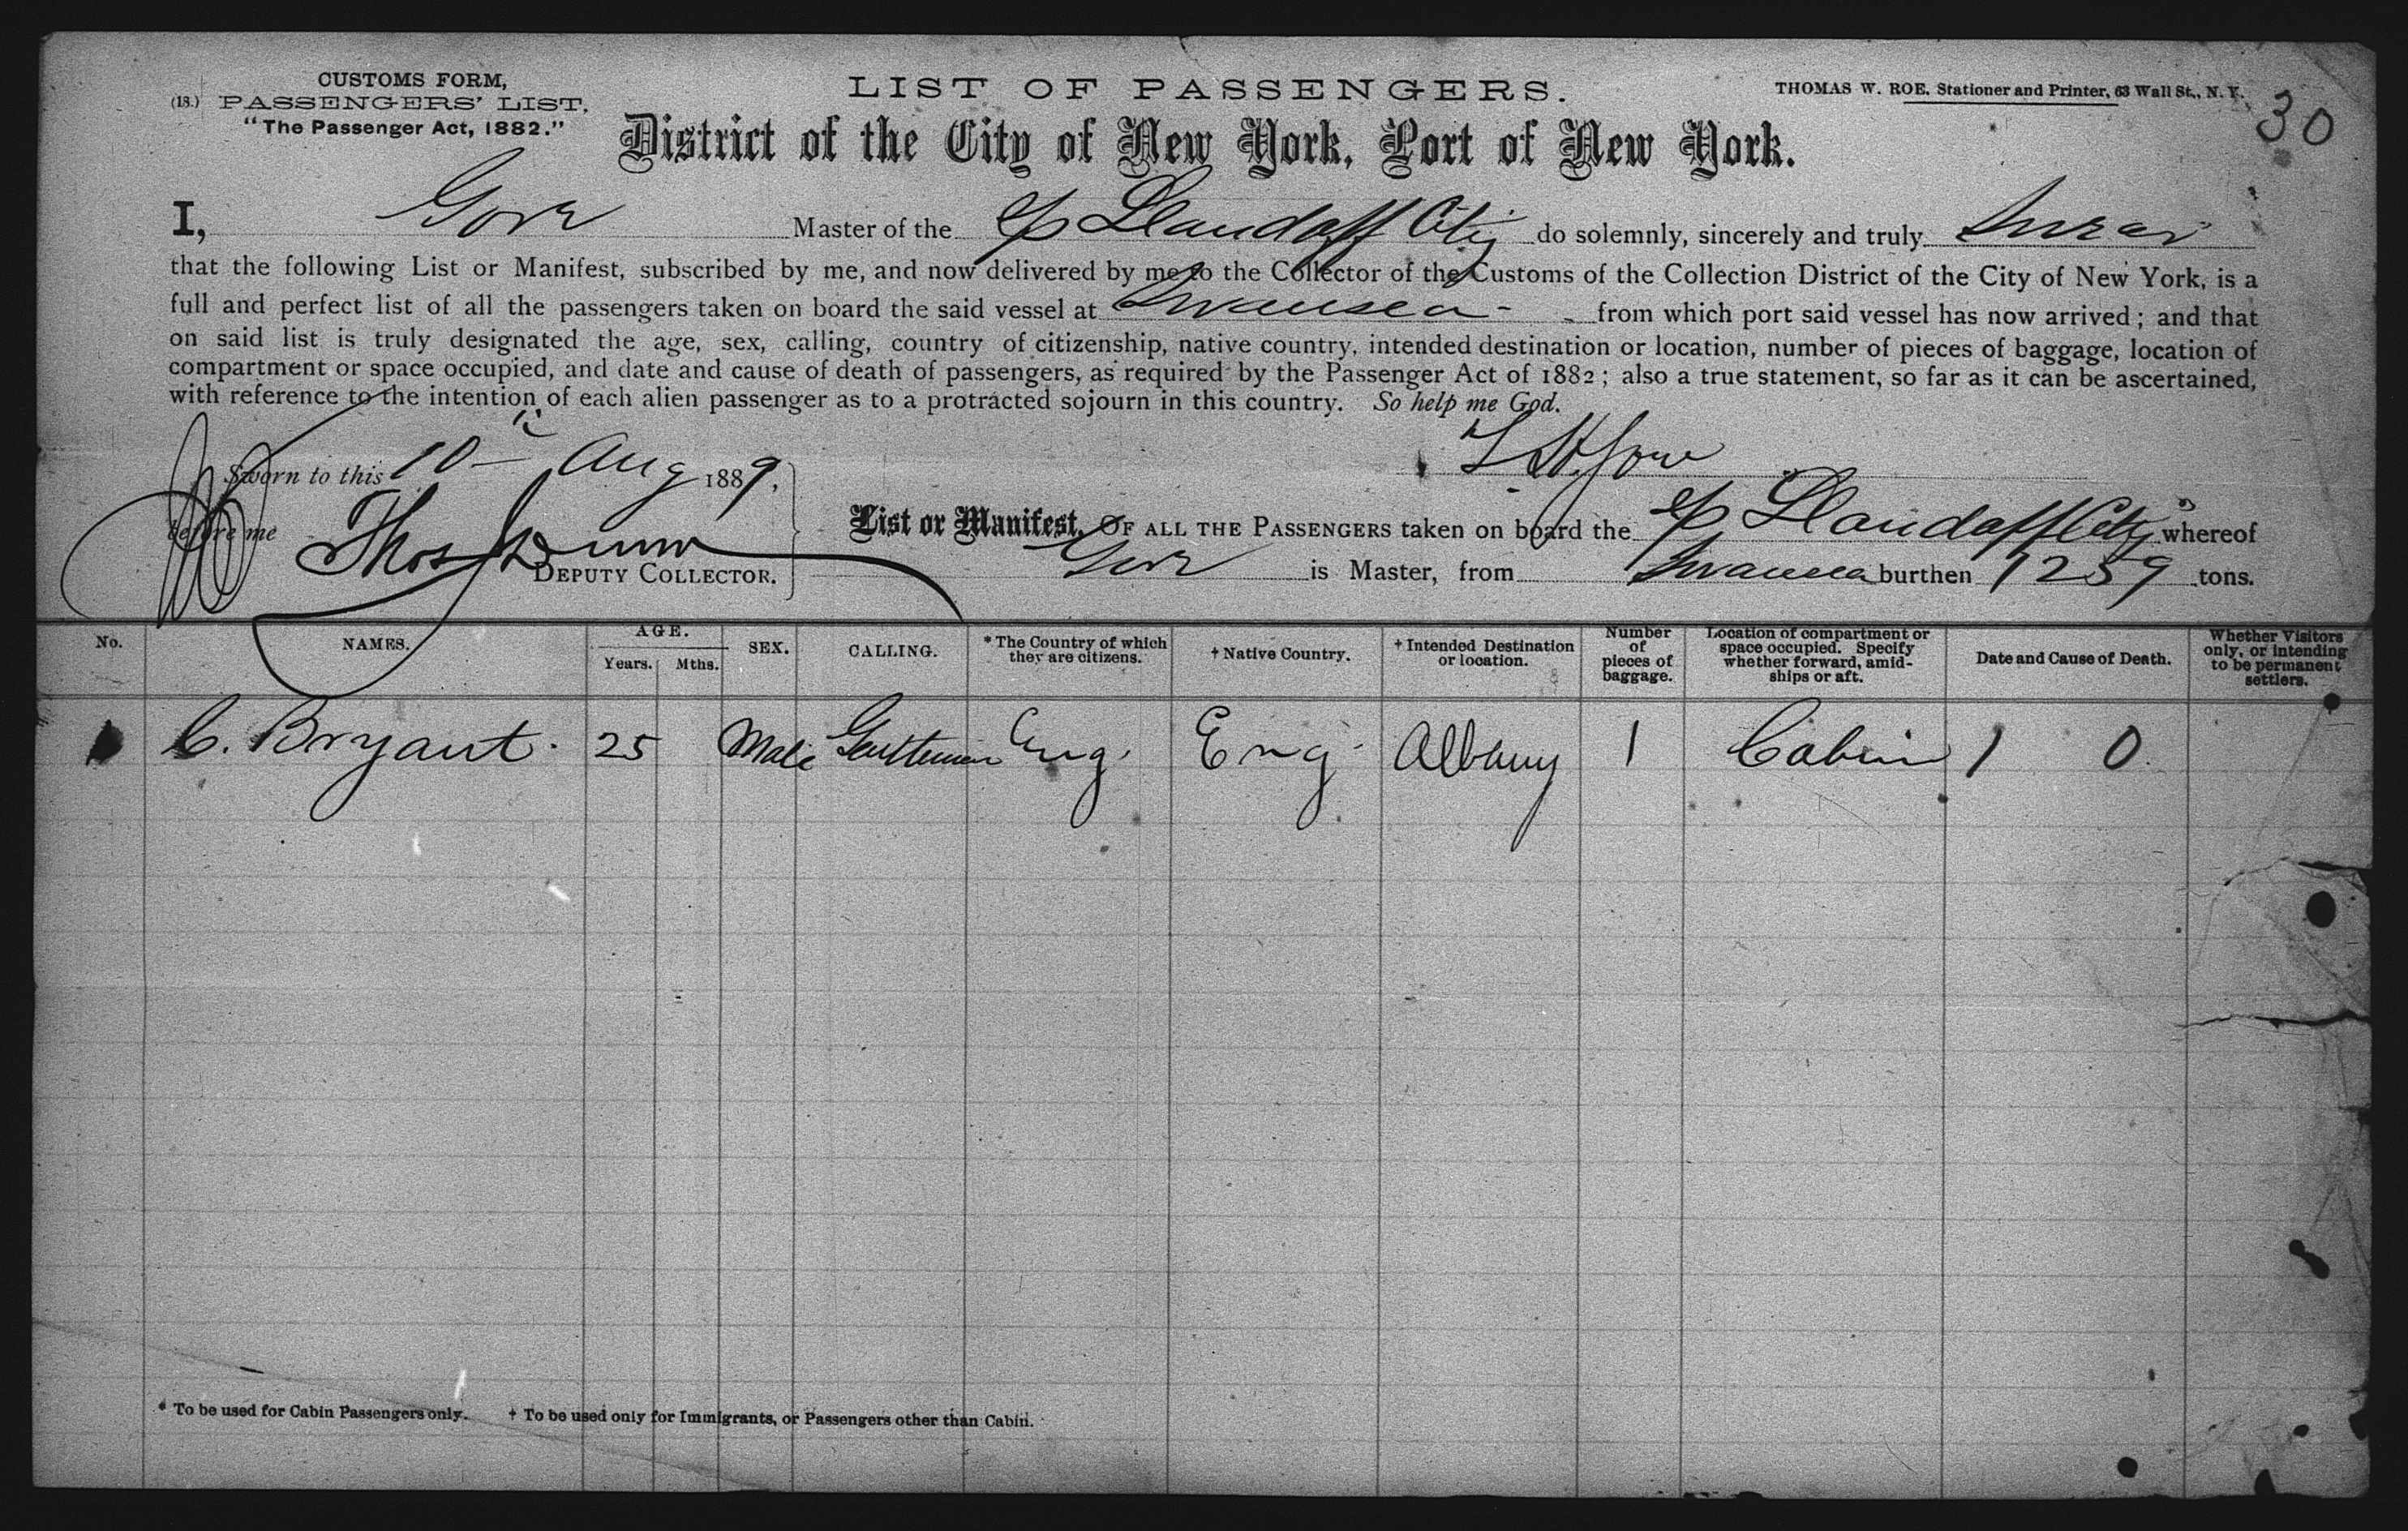 CUSTOMS FORM,
(18.) PASSENGERS' LIST,
"The Passenger Act, 1882."
LIST OF PASSENGERS.
THOMAS W. ROE, Stationer and Printer, 63 Wall St., N. Y.
30
District of the City of New York, Port of New York.
I, Gore Master of the S/S Llandaff City do solemnly, sincerely and truly Swear
that the following List or Manifest, subscribed by me, and now delivered by me to the Collector of the Customs of the Collection District of the City of New York, is a
full and perfect list of all the passengers taken on board the said vessel at Swansea from which port said vessel has now arrived; and that
on said list is truly designated the age, sex, calling, country of citizenship, native country, intended destination or location, number of pieces of baggage, location of
compartment or space occupied, and date and cause of death of passengers, as required by the Passenger Act of 1882; also a true statement, so far as it can be ascertained,
with reference to the intention of each alien passenger as to a protracted sojourn in this country. So help me God.
Sworn to this 10th Aug 1889,
before me Thos Dunn
DEPUTY COLLECTOR.
Gore
List or Manifest, OF ALL THE PASSENGERS taken on board the S/S Llandaff City whereof
Gore is Master, from Swansea burthen 1259 tons.
No. NAMES. AGE. Years. Mths. SEX. CALLING. * The Country of which they are citizens. + Native Country. + Intended Destination or location. Number of pieces of baggage. Location of compartment or space occupied. Specify whether forward, amidships or aft. Date and Cause of Death. Whether Visitors only, or intending to be permanent settlers.
1 C. Bryant. 25 Male Gentleman Eng. Eng. Albany 1 Cabin 1 0
* To be used for Cabin Passengers only. + To be used only for Immigrants, or Passengers other than Cabin.